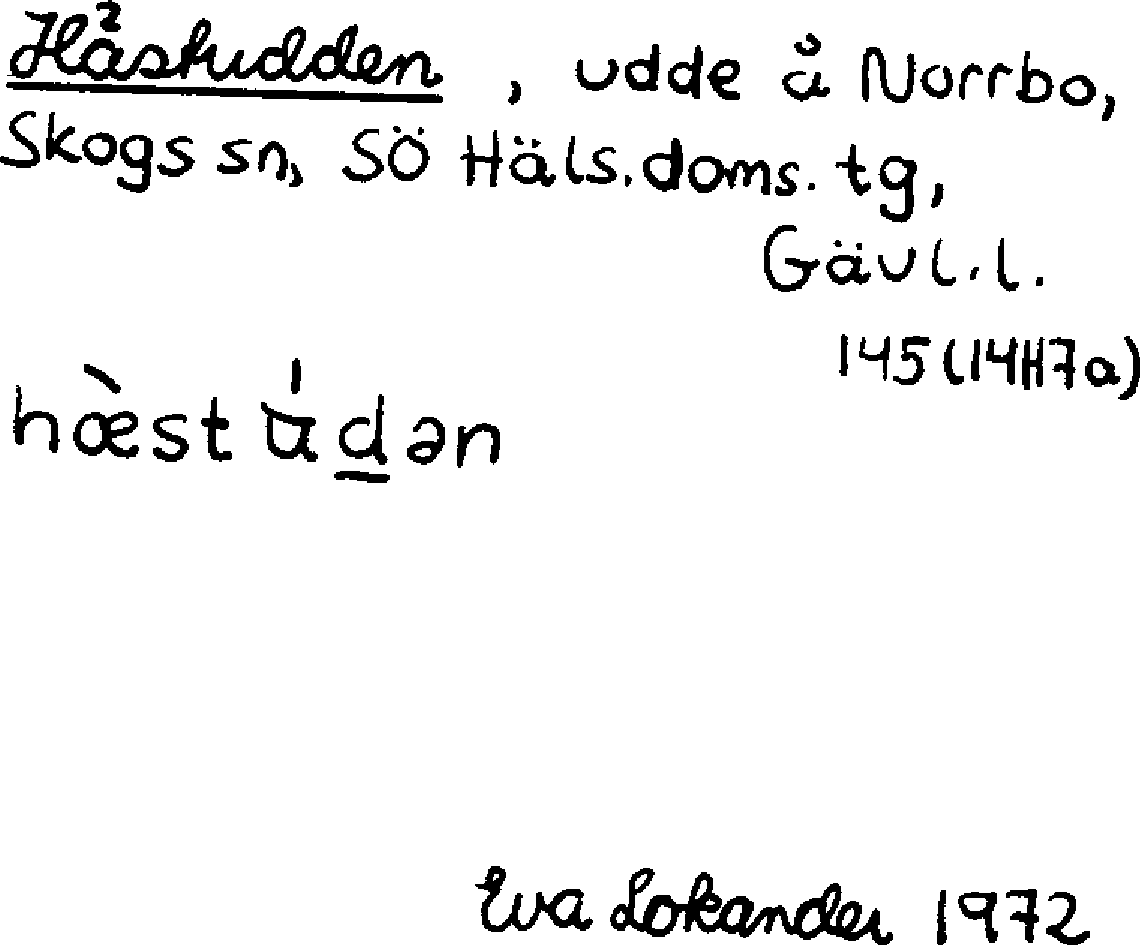 Hästudden, udde å Norrbo,
Skogs sn, SÖ Häls.doms.tg,
Gävl.l.
145 (14H7a)
hæ̀st ú d̲ən
Eva Lokander 1972